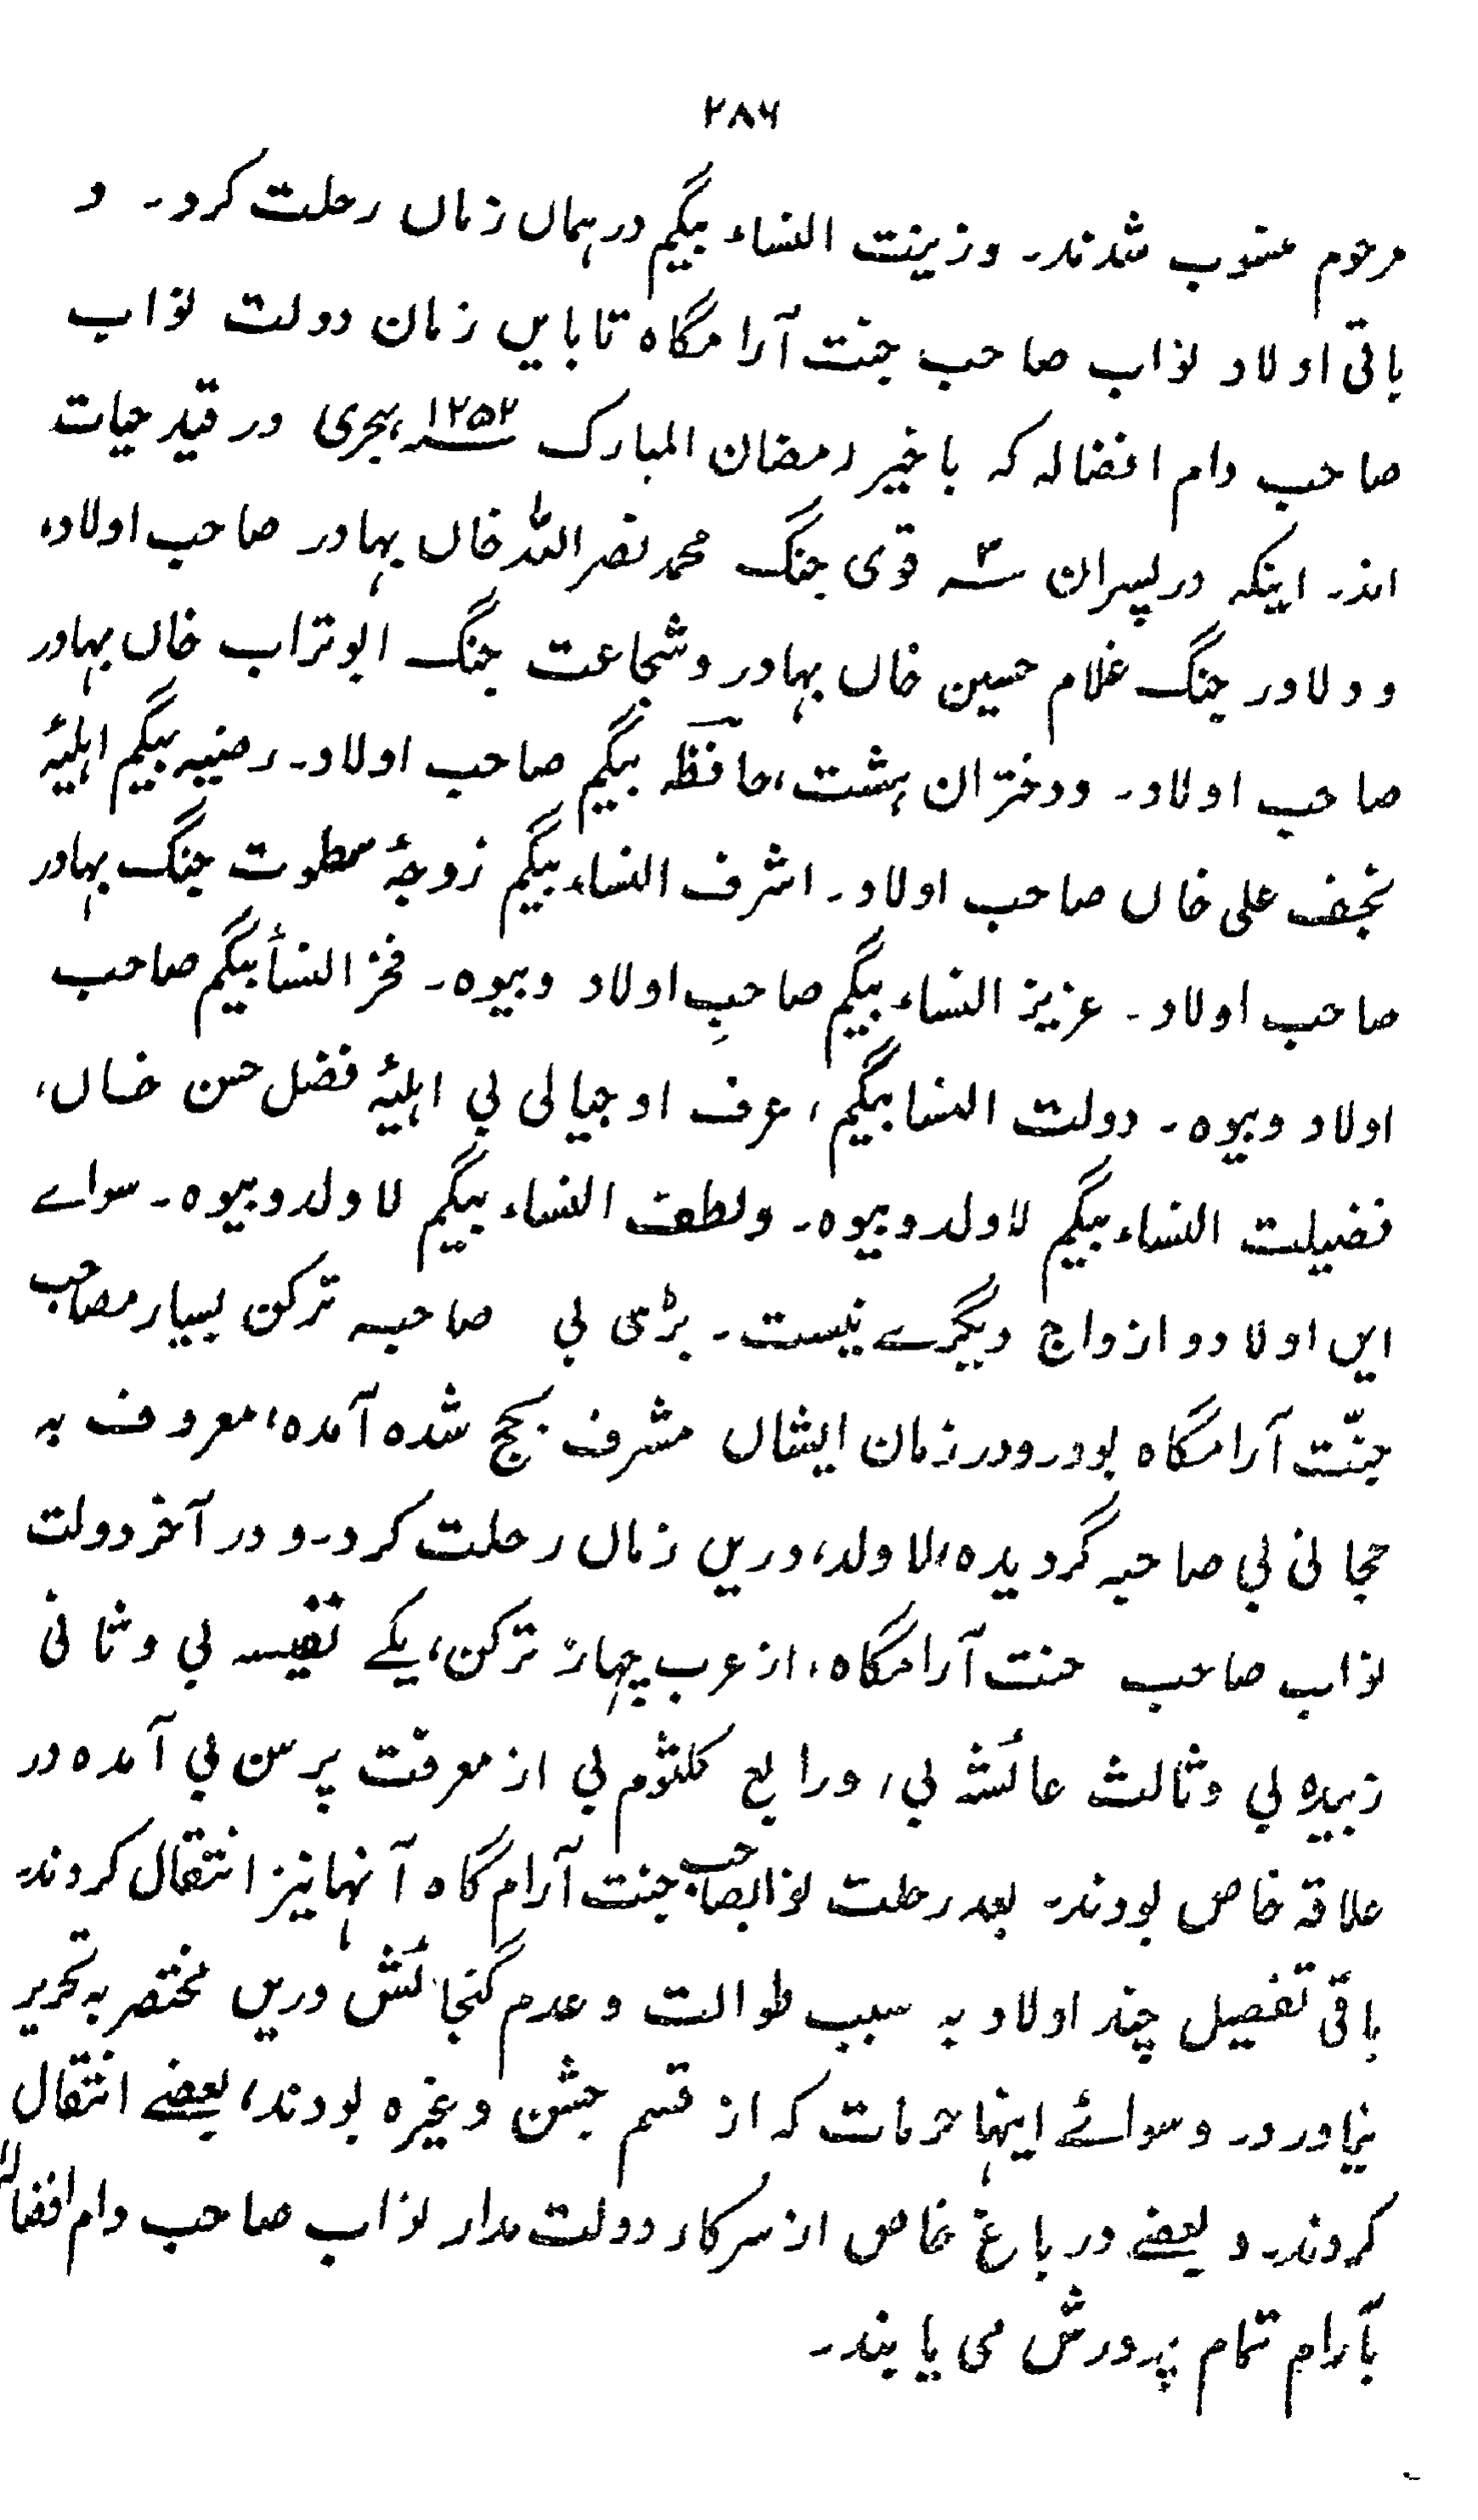 ۲۸۶
مرحوم منسوب شدند۔ وزینت النساء بیگم در ہماں زماں رحلت کرد۔ و
باقی اولاد نواب صاحب جنت آرامگاہ تا بایں زمان دولت نواب
صاحب دام افضالہ کہ باخیر رمضان المبارک ۱۲۵۲ ہجری در قید حیات
اند۔ اینکہ در پسران سہ ۳ قوی جنگ محمد نصر اللہ خاں بہادر صاحب اولاد،
و دلاور جنگ غلام حسین خاں بہادر و شجاعت جنگ ابو تراب خاں بہادر
صاحب اولاد۔ و دختران ہشت، حافظہ بیگم صاحب اولاد۔ رضیہ بیگم اہلیۂ
نجف علی خاں صاحب اولاد۔ اشرف النساء بیگم زوجۂ سطوت جنگ بہادر
صاحب اولاد۔ عزیز النساء بیگم صاحبِ اولاد و بیوہ۔ فخر النسأ بیگم صاحب
اولاد و بیوہ۔ دولت النسا بیگم، عرف اوجیالی بی اہلیۂ فضل حسن خاں،
فضیلت النساء بیگم لاولد و بیوہ۔ ولطف النساء بیگم لاولد و بیوہ۔ سواے
ایں اولاد و ازواج دیگرے نیست۔ بڑی بی صاحبہ ترکن بسیار مصاحب
جنّت آرامگاہ بود۔ ودر زمان ایشاں مشرف بحج شدہ آمدہ، معروف بہ
حجانی بی صاحبہ گردیدہ، لاولد، دریں زماں رحلت کرد۔ و در آخر دولت
نواب صاحب جنت آرامگاہ، از عرب چہار ترکن، یکے نفیسہ بی و ثانی
زبیدہ بی و ثالث عائشہ بی، ورابع کلثوم بی از معرفت پرسن بی آمدہ در
علاقہ خاص بودند۔ بعد رحلت نوابصاحب جنت آرام گاہ آنہا نیز انتقال کردند۔
باقی تفصیل چند اولاد بہ سبب طوالت و عدم گنجائش دریں مختصر بہ تحریر
نیاورد۔ و سوائے اینہا حرمات کہ از قسم حبشن وغیرہ بودند، بعضے انتقال
کردند۔ و بعضے در باغ خاص از سرکار دولت مدار نواب صاحب دام افضالہ
بآرام تمام پرورش می یابند۔